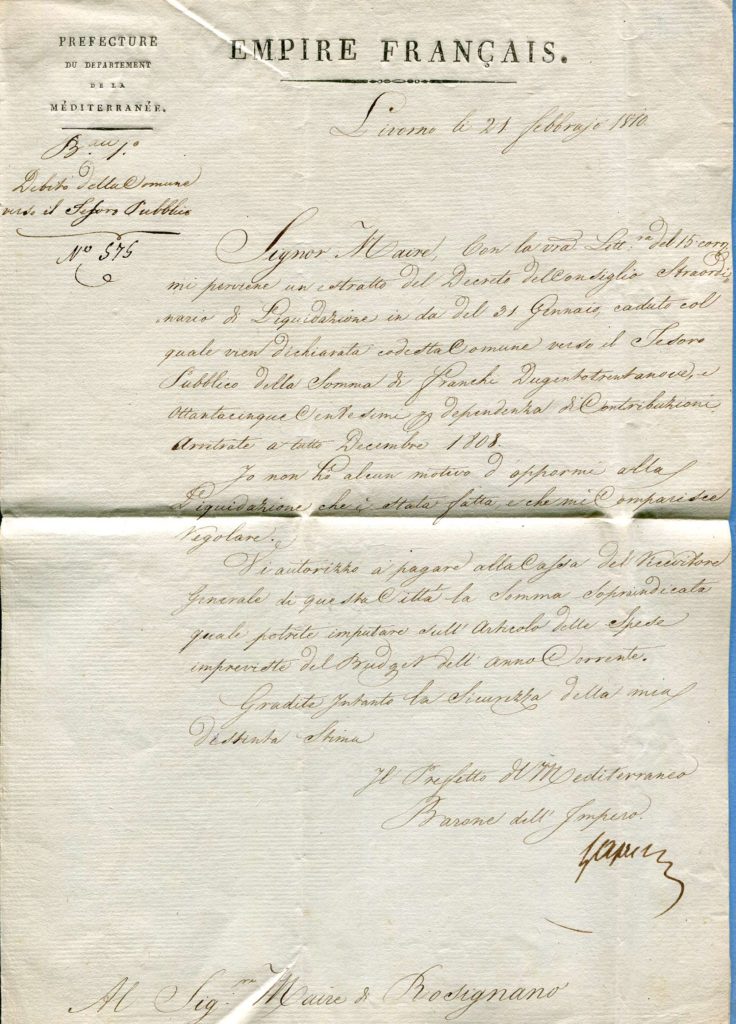 PREFECTURE
DU DEPARTEMENT
DE LA
MÉDITERRANÉE.
EMPIRE FRANÇAIS.
Livorno le 21 febbrajo 1810.
B.au 1.o
Debito della Comune
verso il Tesoro Pubblico
No 575
Signor Maire, Con la vra Lett.ra del 15 corr,
mi perviene un estratto del Decreto del Consiglio Straordi
nario di Liquidazione in da del 31 Gennaio, caduto col
quale vien dichiarata codesta Comune verso il Tesoro
Pubblico della Somma di franchi Dugentotrentanove, e
Ottantacinque Centesimi dependenza di Contribuzioni
Arretrate a tutto Decembre 1808.
Io non ho alcun motivo d'oppormi alla
Liquidazione che è stata fatta, e che mi Comparisce
Regolare.
Vi autorizzo a pagare alla Cassa del Ricevitore
Generale di questa Città la Somma Soprindicata
quale potrete imputare sull' Articolo delle Spese
impreviste del Budget dell' anno Corrente.
Gradite Intanto la Sicurezza della mia
Distinta Stima
Il Prefetto del Mediterraneo
Barone dell' Impero.
Al Sig.re Maire di Rosignano